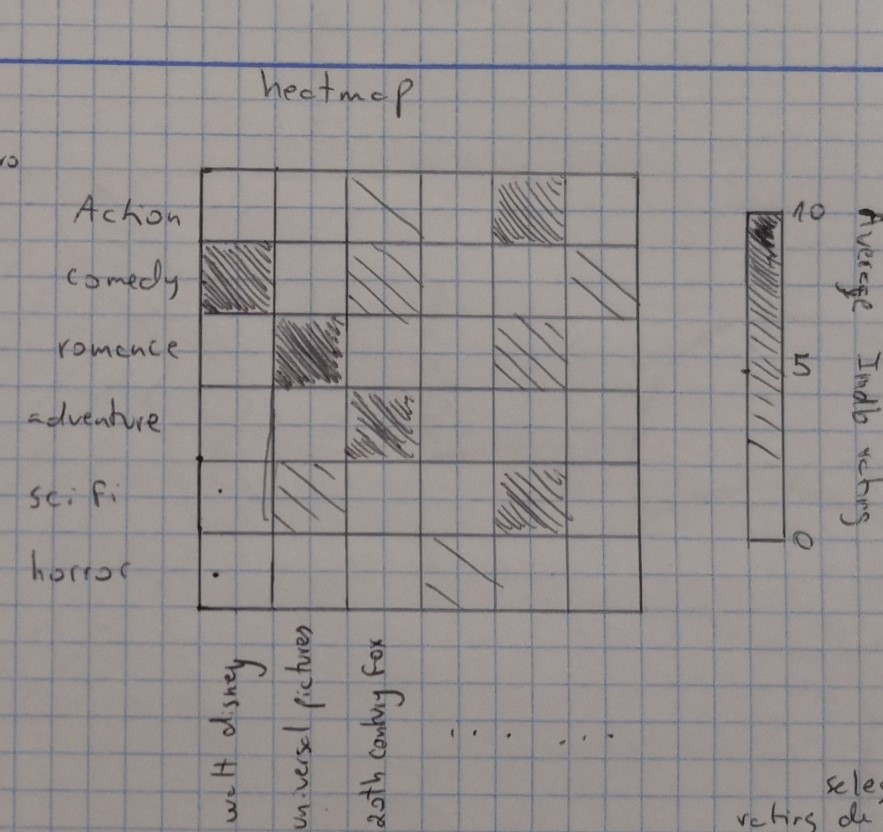 heatmap
Action
comedy
romance
adventure
sci fi
horror
walt disney
universal pictures
20th century fox
... ...
10
5
0
Average Imdb rating